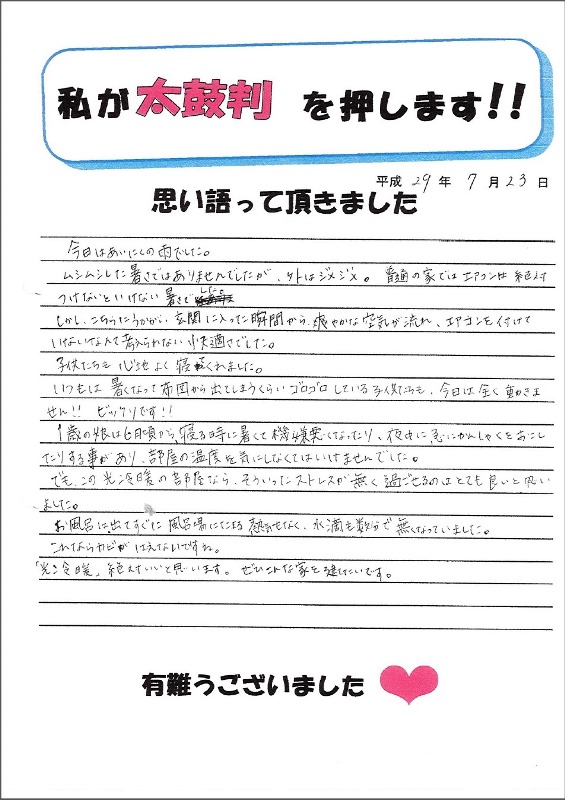 私が太鼓判を押します!!
平成 29 年 7 月 23 日
思い語って頂きました
今日はあいにくの雨でした。
ムシムシした暑さではありませんでしたが、外はジメジメ。普通の家ではエアコンは絶対
つけないといけない暑さでした。
しかし、こちらにうかがい、玄関に入った瞬間から、爽やかな空気が流れ、エアコンを付けて
いないなんて考えられない快適さでした。
子供たちも心地よく寝てくれました。
いつもは暑くなって布団から出てしまうくらいゴロゴロしている子供たちも、今日は全く動きま
せん!! ビックリです!!
1歳の娘は6月頃から、寝る時に暑くて機嫌悪くなったり、夜中に急にかんしゃくをおこし
たりする事があり、部屋の温度を気にしなくてはいけませんでした。
でも、この光冷暖の部屋なら、そういったストレスが無く過ごせるのはとても良いと思い
ました。
お風呂に出てすぐに風呂場にたまる熱気もなく、水滴も数分で無くなっていました。
これならカビがはえないですね。
「光冷暖」絶対いいと思います。ぜひこんな家を建てたいです。
有難うございました